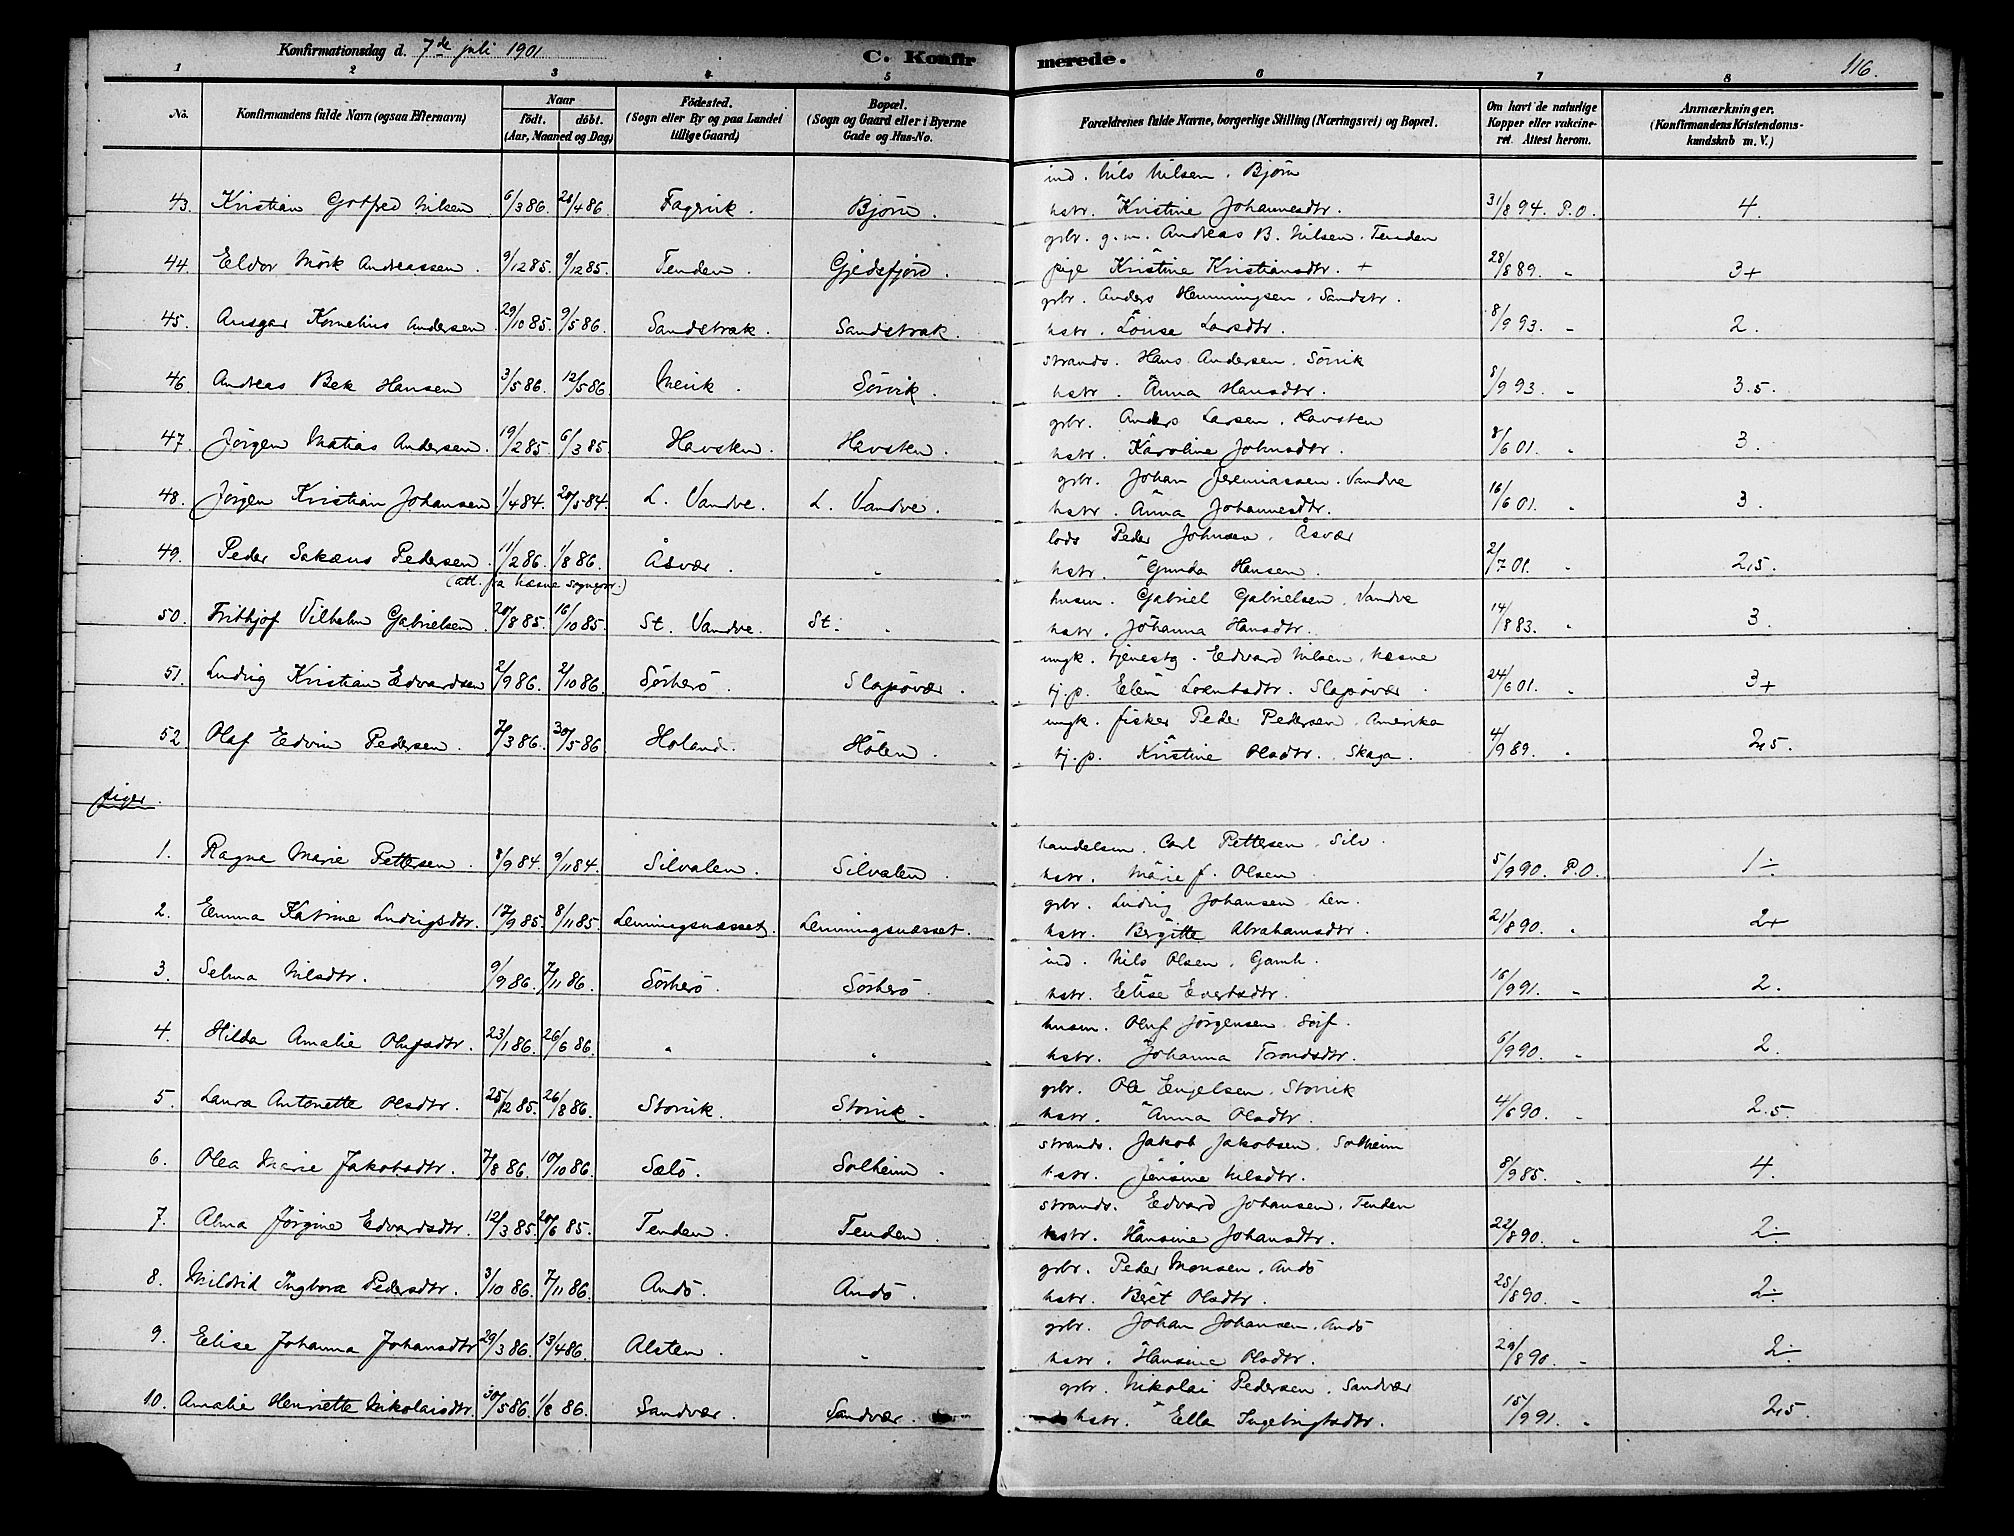 Konfirmationsdag d. 7de juli 1901
C. Konfirmerede.
116.
1 2 3 4 5 6 7 8
No. Konfirmandens fulde Navn (ogsaa Efternavn) Naar født. døbt. (Aar, Maaned og Dag) Födested. (Sogn eller By og paa Landet tillige Gaard) Bopæl. (Sogn og Gaard eller i Byerne Gade og Hus-No. Forældrenes fulde Navne, borgerlige Stilling (Næringsvei) og Bopæl. Om havt de naturlige Kopper eller vaccineret. Attest herom. Anmærkninger. (Konfirmandens Kristendomskundskab m. V.)
ind. Nils Nilsen. Bjørn
43. Kristian Gotfred Nilsen 6/3 86. 26/4 86. Fagervik. Bjørn. hstr. Kristine Johannesdtr. 31/8 94. P.O. 4.
grbr. g.m. Andreas B. Nilsen. Tenden
44. Eldor Mörk Andreassen. 9/12 85. 9/12 85. Tenden. Gjedsfjord. pige Kristine Kristiansdtr. + 28/8 89. " 3+
grbr. Anders Henningsen. Sandstr.
45. Ansgar Kornelius Andersen 29/10 85. 9/5 86. Sandstrak. Sandstrak. hstr. Lovise Larsdtr. 8/9 93. " 2.
strands. Hans Andersen. Sörvik
46 Andreas Bek Hansen 3/5 86. 12/5 86. Sörvik. hstr. Anna Hansdtr. 8/9 93. " 3.5.
grbr. Anders Larsen. Havsten
47. Jörgen Matias Andersen. 19/2 85. 6/3 85. Havsten. Havsten. hstr. Karoline Johnsdtr. 8/6 01. " 3.
grbr. Johan Jeremiassen. Vandve
48. Jørgen Kristian Johansen 1/4 84. 20/5 84. L. Vandve. L. Vandve. hstr. Anna Johannesdtr. 16/6 01. " 3.
lods Peder Johnsen. Åsvær
49. Peder Sakæus Pedersen 11/2 86. 1/8 86. Åsvær. " hstr. Gunda Hansen. 2/7 01. " 2,5.
(att. fra Næsne sognepr.)
husm. Gabriel Gabrielsen. Vandve
50. Frithjof Vilhelm Gabrielsen. 20/8 85. 16/10 85. St. Vandve. St. " hstr. Johanna Hansdtr. 14/8 83. " 3.
ungk. tjenestg. Edvard Nilsen. Næsne
51. Ludvig Kristian Edvardsen 2/9 86. 2/10 86. Sörherö. Slapövær. tj.p. Elen Lorntsdtr. Slapövær 24/6 01. " 3+
ungk. fisker Peder Pedersen. Amerika
52. Olaf Edvin Pedersen. 7/3 86. 30/5 86 Holand. Hölen. tj.p. Kristine Olsdtr. Skaga. 4/9 89. " 2,5.
piger.
handelsm. Carl Pettersen. Silv.
1. Ragna Marie Pettersen. 8/9 84. 9/11 84. Silvalen. Silvalen. hstr. Marie f. Olsen 5/9 90. P.O. 1÷
grbr. Ludvig Johansen. Len.
2. Emma Katrine Ludvigsdtr. 17/9 85. 8/11 85. Lenningsnæsset. Lenningsnæsset. hstr. Bergitte Abrahamsdtr. 21/8 90. " 2+
ind. Nils Olsen. Gamh.
3. Selma Nilsdtr. 9/9 86. 7/11 86. Sörherö. Sörherö. hstr. Elise Evertsdtr. 16/9 91. " 2.
husm. Oluf Jørgensen. Sörf.
4. Hilda Amalie Olufsdtr. 23/1 86. 26/6 86. " " hstr. Johanna Trondsdtr. 6/9 90. " 2.
grbr. Ole Engelsen. Storvik
5. Laura Antonette Olsdtr. 25/12 85. 26/8 86. Storvik. Storvik. hstr. Anna Olsdtr. 4/6 90. " 2.5.
strands. Jakob Jakobsen. Solheim
6. Olea Marie Jakobsdtr. 7/8 86. 10/10 86. Salö. Solheim. hstr. Jensine Nilsdtr. 8/9 85. " 4.
strands. Edvard Johansen. Tenden
7. Alma Jørgine Edvardsdtr. 12/3 85. 20/6 85. Tenden. Tenden. hstr. Hansine Johansdtr. 22/8 90. " 2÷
grbr. Peder Monsen. Andö
8. Mildrid Ingbora Pedersdtr. 3/10 86. 7/11 86. Andö. Andö. hstr. Beret Olsdtr. 25/8 90. " 2÷
grbr. Johan Johansen. Andö
9. Elise Johanna Johansdtr 29/3 86. 13/4 86. Alsten. " hstr. Hansine Olsdtr. 29/8 90. " 2÷
grbr. Nikolai Pedersen. Sandvær
10. Amalie Henriette Nikolaisdtr. 30/5 86. 1/8 86. Sandvær. Sandvær. hstr. Ella Ingebrigtsdtr. 15/9 91. " 2,5.